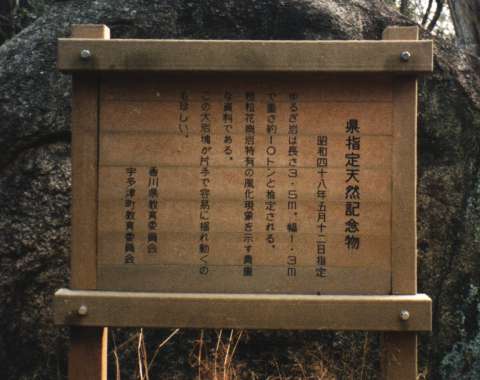 県指定天然記念物
昭和四十八年五月十二日指定
ゆるぎ岩は長さ3.5m、幅1.3m
で重さ約10トンと推定される。
粗粒花崗岩特有の風化現象を示す貴重
な資料である。
この大岩塊が片手で容易に揺れ動くの
も珍しい。
香川県教育委員会
宇多津町教育委員会